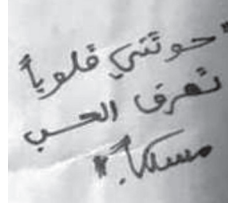 "حوتني قلوباً
تعرف الحب
مسلكاً."